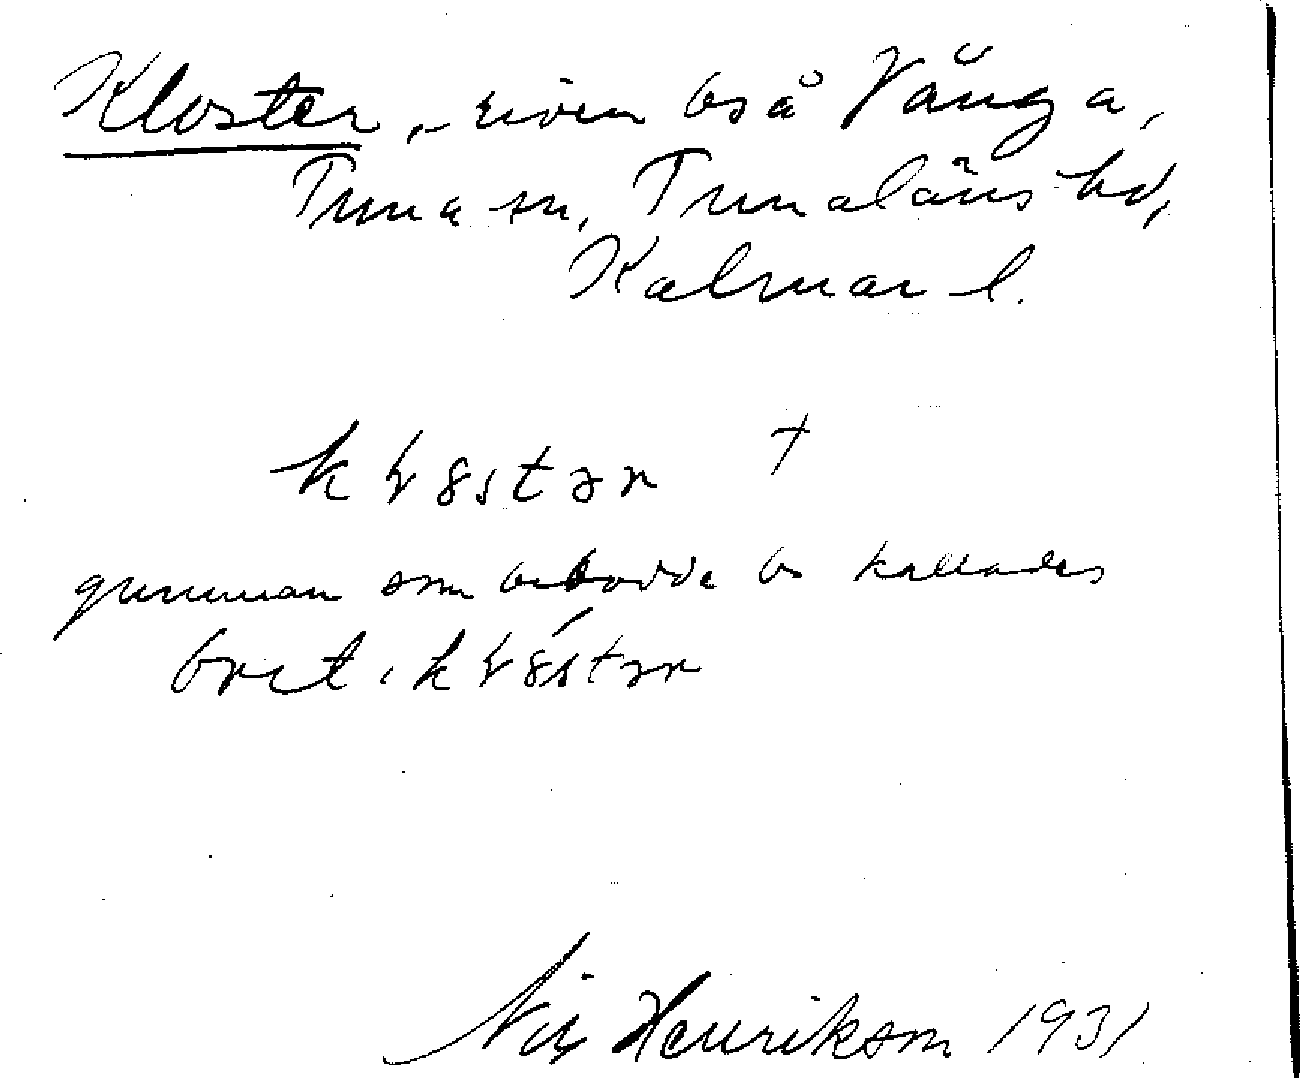 Kloster, riven bs å Vånga,
Tuna sn, Tunaläns hd,
Kalmar l.
kɫ8stər +
gumman som bebodde bs kallades
brit i kɫ8stər
Nils Henrikson 1931